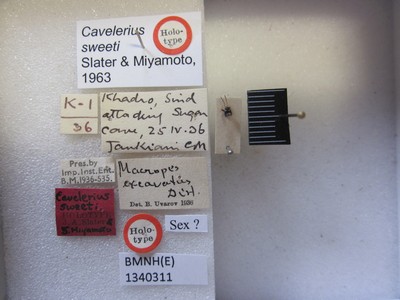 Cavelerius
sweeti
Slater & Miyamoto,
1963
Holo-
type
K-1
36
Khadro, Sind
attacking Sugar
cane, 25 IV. 36
Jankiani coll
Pres. by
Imp. Inst. Ent.
B.M. 1936-535.
Macropes
excavatus
Dist.
Det. B. Uvarov 1936
Cavelerius
sweeti
S. Miyamoto
Holo-
type
Sex ?
BMNH(E)
1340311